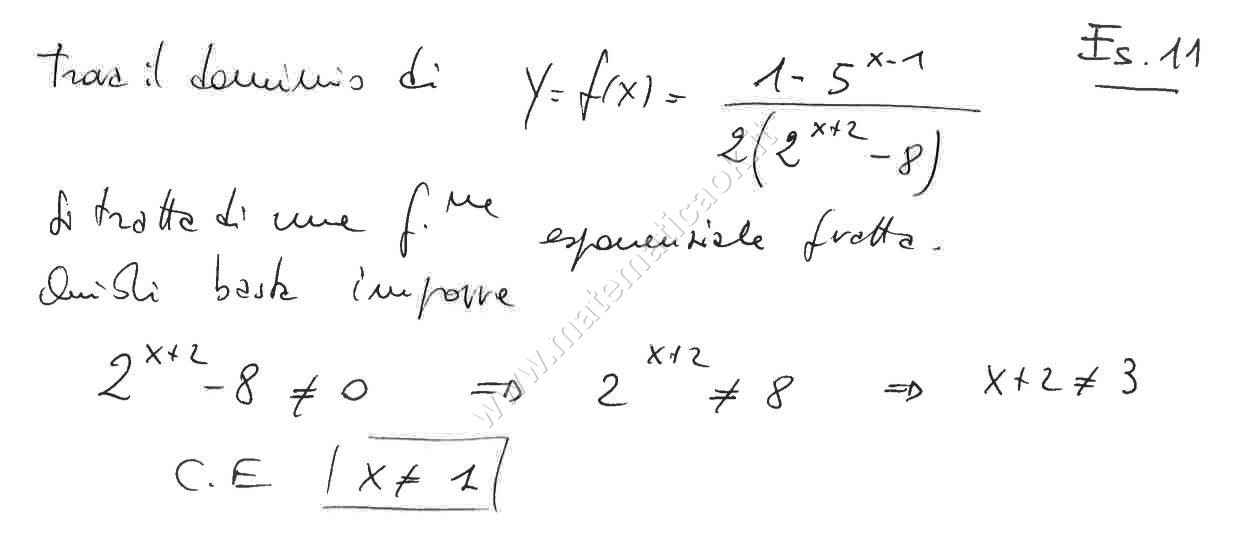 Es. 11
Trova il dominio di y = f(x) = (1 - 5^(x-1)) / (2(2^(x+2) - 8))
Si tratta di una f.ne esponenziale fratta.
Quindi basta imporre
2^(x+2) - 8 ≠ 0 ⇒ 2^(x+2) ≠ 8 ⇒ x + 2 ≠ 3
C.E x ≠ 1
www.matematicaok.it